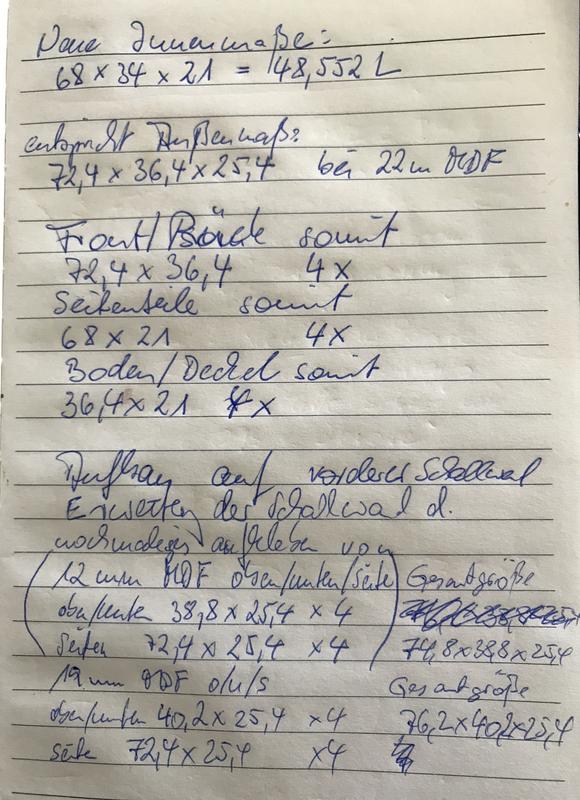 Neue Innenmaße:
68 x 34 x 21 = 48,552 L
entspricht Außenmaß:
72,4 x 36,4 x 25,4 bei 22m MDF
Front/Rück somit
72,4 x 36,4 4x
Seitenteile somit
68 x 21 4x
Boden/Deckel somit
36,4 x 21 4x
auf vorderer Schallwand
Erweitern der Schallwand d.
nochmaliges aufkleben von
(12 mm MDF oben/unten/seite) Gesamtgröße
oben/unten 38,8 x 25,4 x 4
Seiten 72,4 x 25,4 x 4 74,8x38,8x25,4
19 mm MDF o/u/s Gesamtgröße
oben/unten 40,2 x 25,4 x4 76,2x40,2x25,4
Seite 72,4 x 25,4 x4